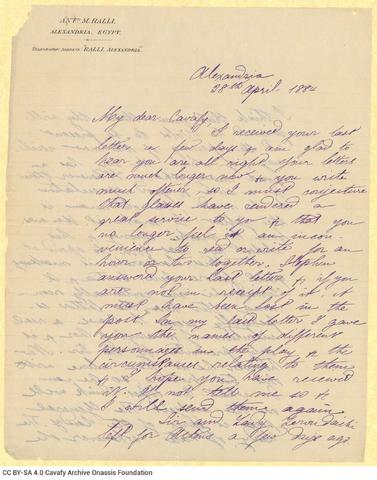 ANTO. M. RALLI.
ALEXANDRIA, EGYPT.
TELEGRAPHIC ADDRESS "RALLI, ALEXANDRIA"
Alexandria
28th April 1884
My dear Cavafy,
I received your last
letter a few days & am glad to
hear you are all right. Your letters
are much longer now & you write
much oftener, so I must conjecture
that glasses have rendered a
great service to you & that you
no longer feel it an incon-
venience to read or write for an
hour or two together. Stephen
answered your last letter & if you
are not in receipt of it, it
must have been lost in the
post. In my last letter I gave
you the names of different
personnages in the play & the
circumstances relating to them
& I hope you have received
it; if not, tell me so &
I will send them again.
Sir and Lady
left for Athens a few days ago
CC BY-SA 4.0 Cavafy Archive Onassis Foundation